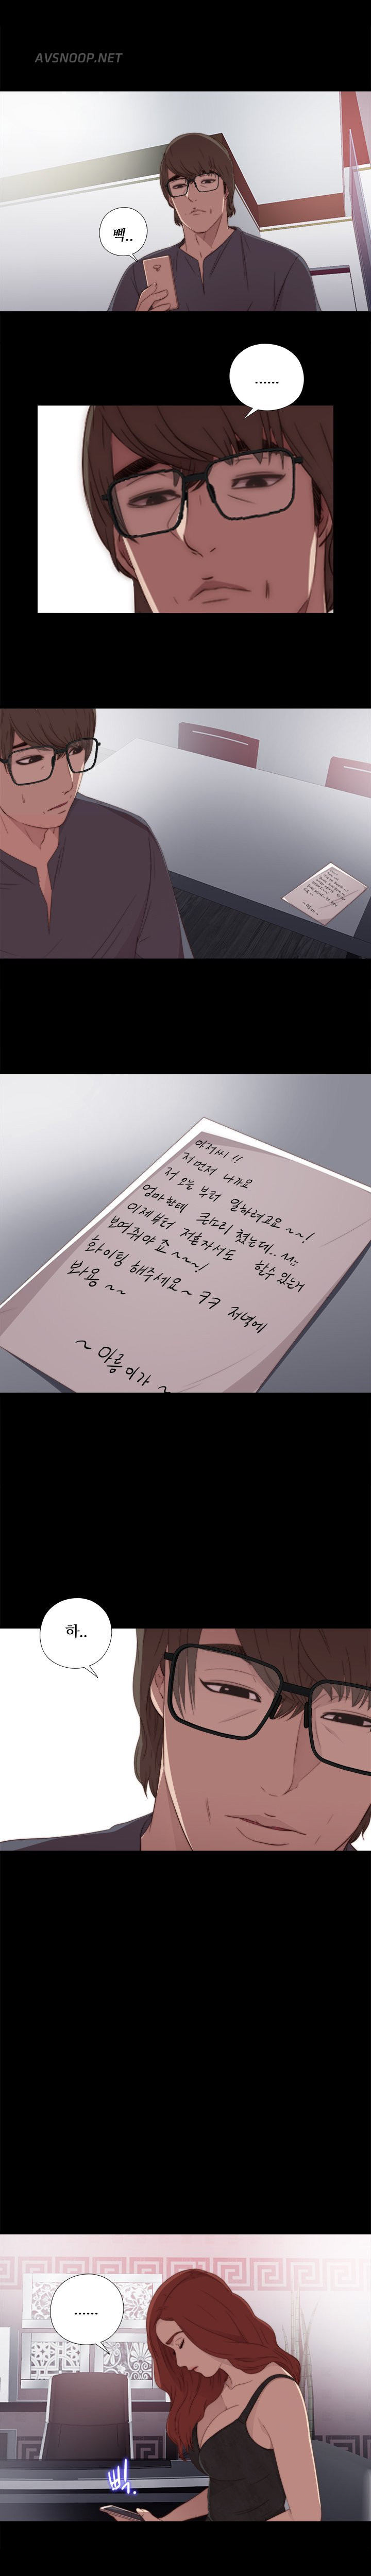 AVSNOOP.NET
삑..
......
아저씨!!
저 먼저 나가요
저 오늘 부터 일하려고요~~!
엄마한테 큰소리 쳤는데..^^;;
이제부터 저혼자서도 할수 있는거
보여줘야죠~~~!
화이팅 해주세요~ ㅋㅋ 저녁에
봐용~~
~아름이가~
하..
......
삑.